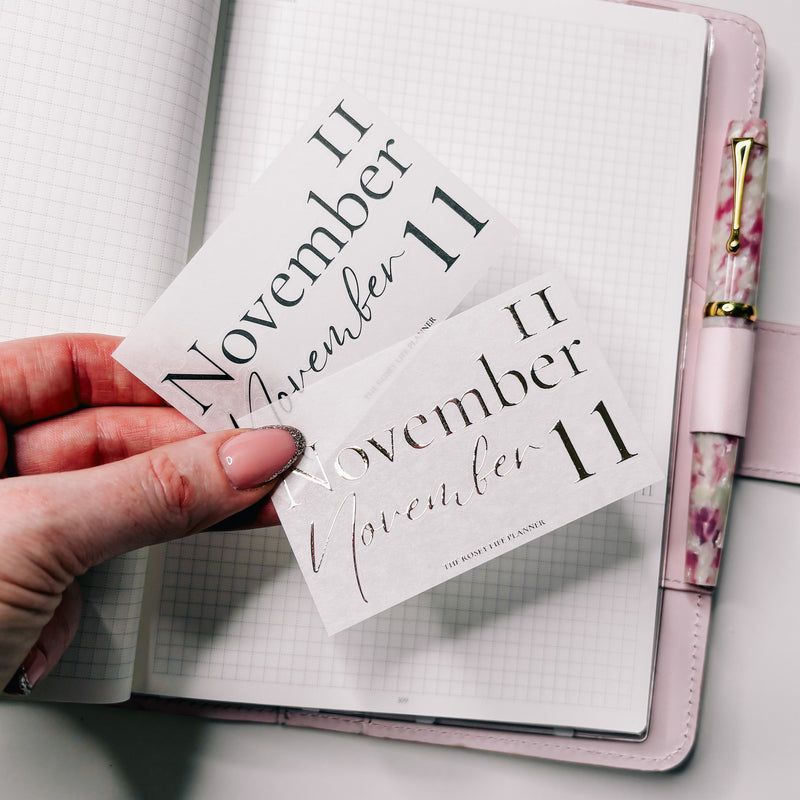 II
November
November 11
THE ROSEY LIFE PLANNER
II
November
November 11
THE ROSEY LIFE PLANNER
11